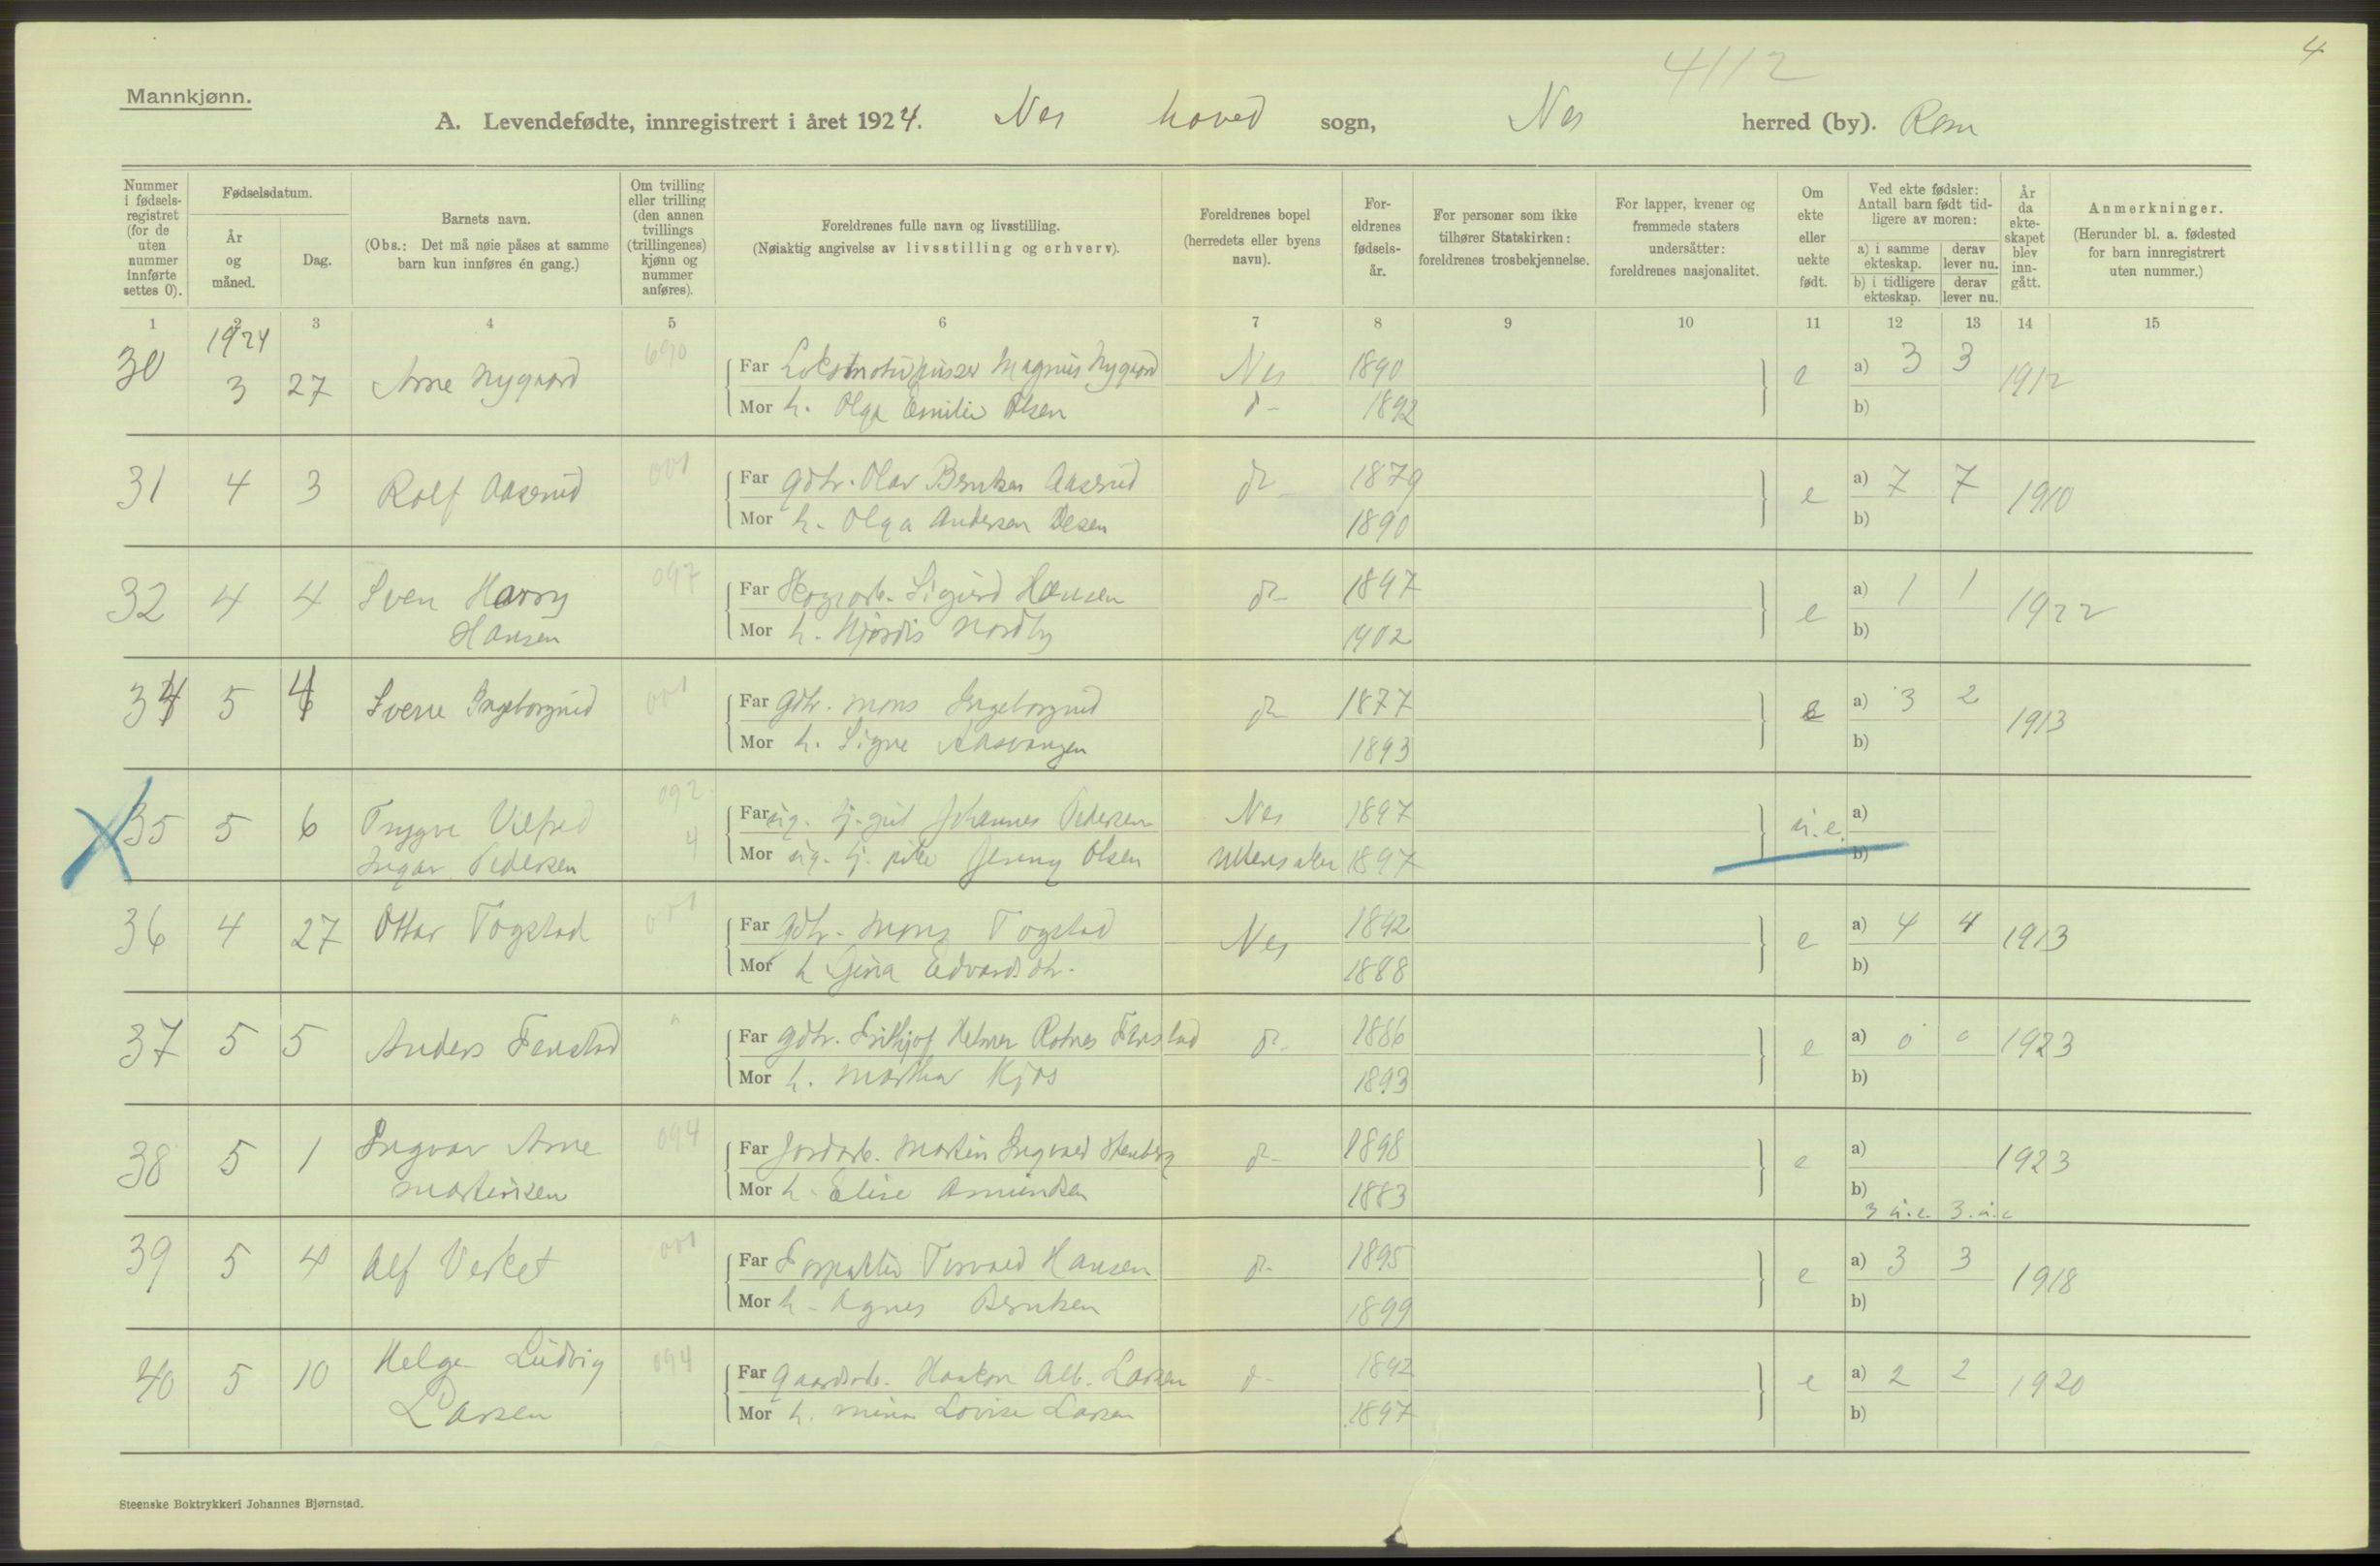 4
4112
Mannkjønn.
A. Levendefødte, innregistrert i året 1924. Nes hoved sogn, Nes herred (by). Rom
Nummer i fødselsregistret (for de uten nummer innførte settes 0).
Fødselsdatum.
År og måned.
Dag.
Barnets navn.
(Obs.: Det må nøie påses at samme barn kun innføres én gang.)
Om tvilling eller trilling (den annen tvillings (trillingenes) kjønn og nummer anføres).
Foreldrenes fulle navn og livsstilling.
(Nøiaktig angivelse av livsstilling og erhverv).
Foreldrenes bopel (herredets eller byens navn).
Foreldrenes fødselsår.
For personer som ikke tilhører Statskirken: foreldrenes trosbekjennelse.
For lapper, kvener og fremmede staters undersåtter: foreldrenes nasjonalitet.
Om ekte eller uekte født.
Ved ekte fødsler: Antall barn født tidligere av moren:
a) i samme ekteskap. derav lever nu.
b) i tidligere ekteskap. derav lever nu.
År da ekteskapet blev inngått.
Anmerkninger.
(Herunder bl. a. fødested for barn innregistrert uten nummer.)
1 2 3 4 5 6 7 8 9 10 11 12 13 14 15
1924
30 3 27 Arne Nygaard 690 Far Lokomotivpusser Magnus Nygaard Nes 1890 e a) 3 3 1912
Mor h. Olga Emilie Olsen d- 1892 b)
31 4 3 Rolf Aaserud 001 Far gdbr. Olav Berntsen Aaserud do 1879 e a) 7 7 1910
Mor h. Olga Andersen 1890 b)
32 4 4 Sven Harry Hansen 097 Far Sigurd Hansen do 1897 e a) 1 1 1922
Mor h. Hjørdis Nordby 1902 b)
34 5 4 Sverre Ingeborgrud 001 Far Gdbr. Mons Ingeborgrud do 1877 e a) 3 2 1913
Mor h. Signe Aasvangen 1893 b)
35 5 6 Trygve Vilfred Ingar Pedersen 092 4 Far ug. tj. gut Johannes Pedersen Nes 1897 u.e. a)
Mor ug. tj. pike Jenny Olsen Ullensaker 1897 b)
36 4 27 Ottar Togstad 001 Far Gdbr. Mons Togstad Nes 1892 e a) 4 4 1913
Mor h Gina Edvardsdtr. 1888 b)
37 5 5 Anders Fenstad " Far gdbr. Frithjof Helmer Rotnes Fenstad do 1886 e a) 0 0 1923
Mor h. Martha Kjos 1893 b)
38 5 1 Ingvar Arne Martinsen 094 Far Jordarb. Martin Ingvald Stenberg do 1898 e a) 1923
Mor h. Elise Amundsen 1883 b) 3 u.e. 3 u.e
39 5 4 Alf Verket 001 Far Forpakter Torvald Hansen do 1895 e a) 3 3 1918
Mor h. Agnes Berntsen 1899 b)
40 5 10 Helge Ludvig Larsen 094 Far Gaardsarb. Haakon Alb. Larsen d- 1892 e a) 2 2 1920
Mor h. Mina Lovise Larsen 1897 b)
Steenske Boktrykkeri Johannes Bjørnstad.